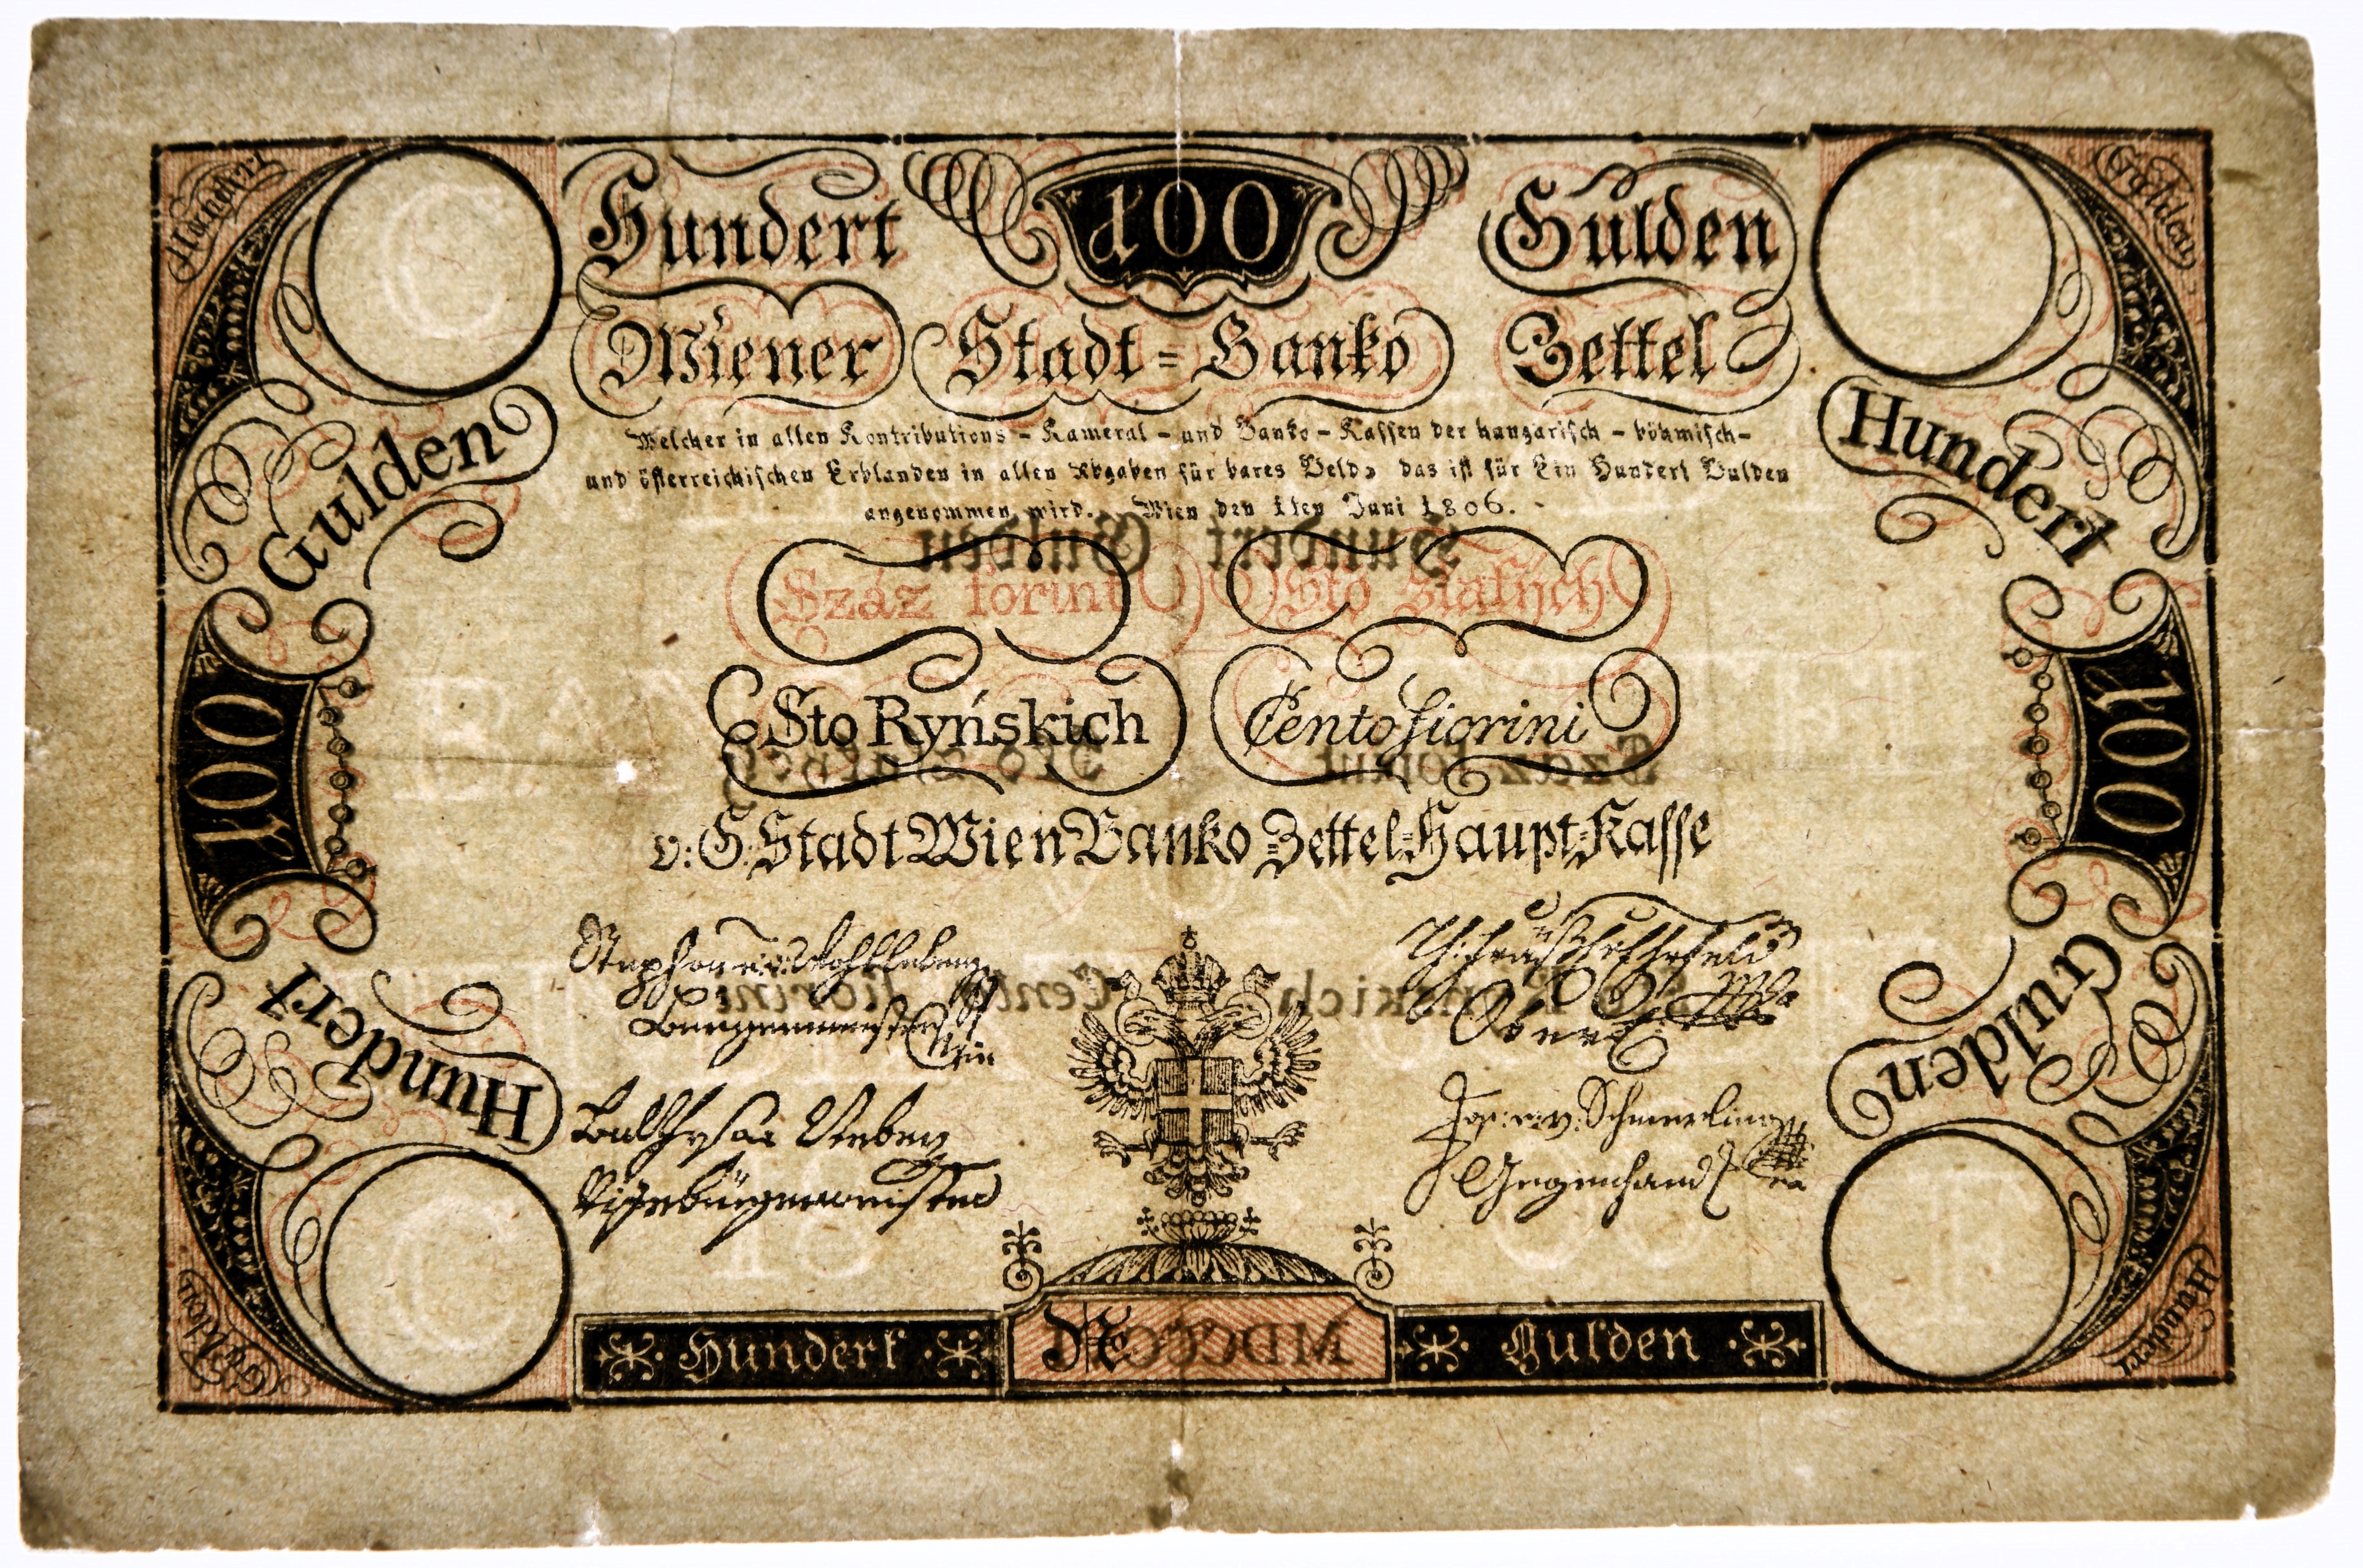 Hundert 100 Gulden
Wiener Stadt=Banko Zettel
Welcher in allen Kontributions - Kameral - und Banko - Kassen der hungarisch - böhmisch-
und österreichischen Erblanden in allen Abgaben für bares Geld, das ist für Ein Hundert Gulden
angenommen wird. Wien den 1ten Juni 1806.
Hundert Gulden
Száz forint Sto Slatých
Sto Ryńskich Cento fiorini
v: G: Stadt Wien Banko Zettel=Haupt=Kasse
Gulden
100
Hundert
Hundert
100
Gulden
Hundert
Gulden
Gulden
Hundert
Bürgermeister
Wien
Jos: v: Schmerling
Vizebürgermeister
Gegenhand
Hundert No Gulden
C
C